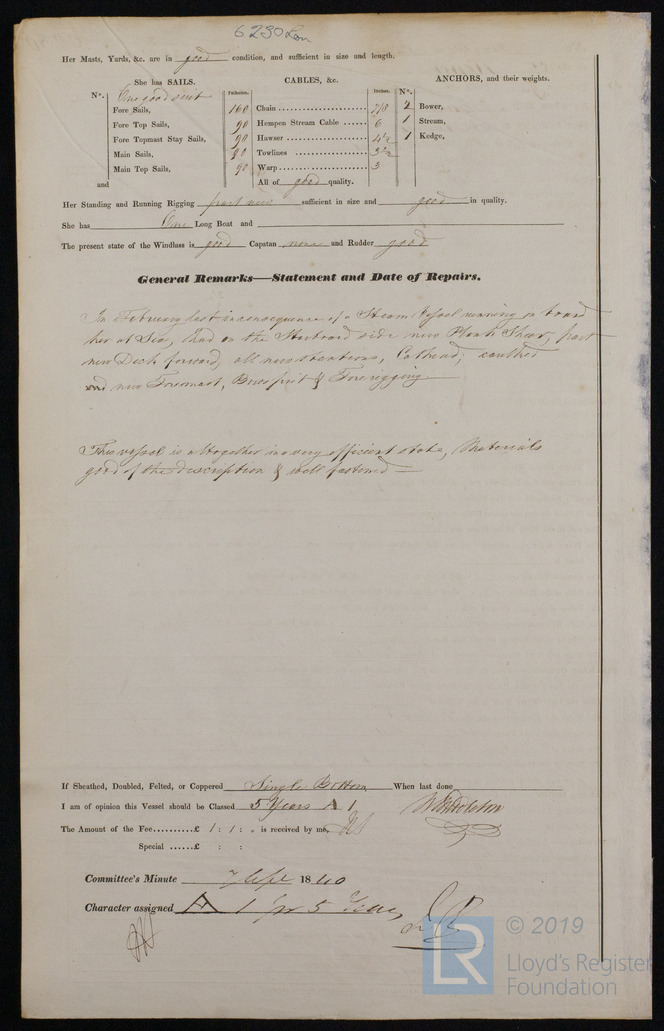 6230 Lon
Her Masts, Yards, &c. are in good condition, and sufficient in size and length.
She has SAILS.
CABLES, &c.
ANCHORS, and their weights.
No.
One good suit
Fathoms.
Inches.
No.
Fore Sails,
Fore Top Sails,
Fore Topmast Stay Sails,
Main Sails,
Main Top Sails,
and
Chain 160 7/8
Hempen Stream Cable 90 6
Hawser 90 4½
Towlines 90 3½
Warp 90 3
All of good quality.
2 Bower,
1 Stream,
1 Kedge,
Her Standing and Running Rigging part new sufficient in size and good in quality.
She has One Long Boat and
The present state of the Windlass is good Capstan none and Rudder good
General Remarks—Statement and Date of Repairs.
In February last in consequence of a Steam Vessel running on board
her at Sea, had on the Starboard side new Plank Shear, part
new Deck forward, all new Stantions, Cathead, caulked
and new Foremast, Bowsprit & Forerigging
This vessel is altogether in a very efficient state, Materials
good of the description & well fastened
If Sheathed, Doubled, Felted, or Coppered Single Bottom When last done
I am of opinion this Vessel should be Classed 5 Years A 1
The Amount of the Fee £ 1 : 1 : is received by me,
Special £ : :
Committee's Minute 7 Apl 1840
Character assigned A 1 for 5 Years
LR
© 2019
Lloyd's Register
Foundation